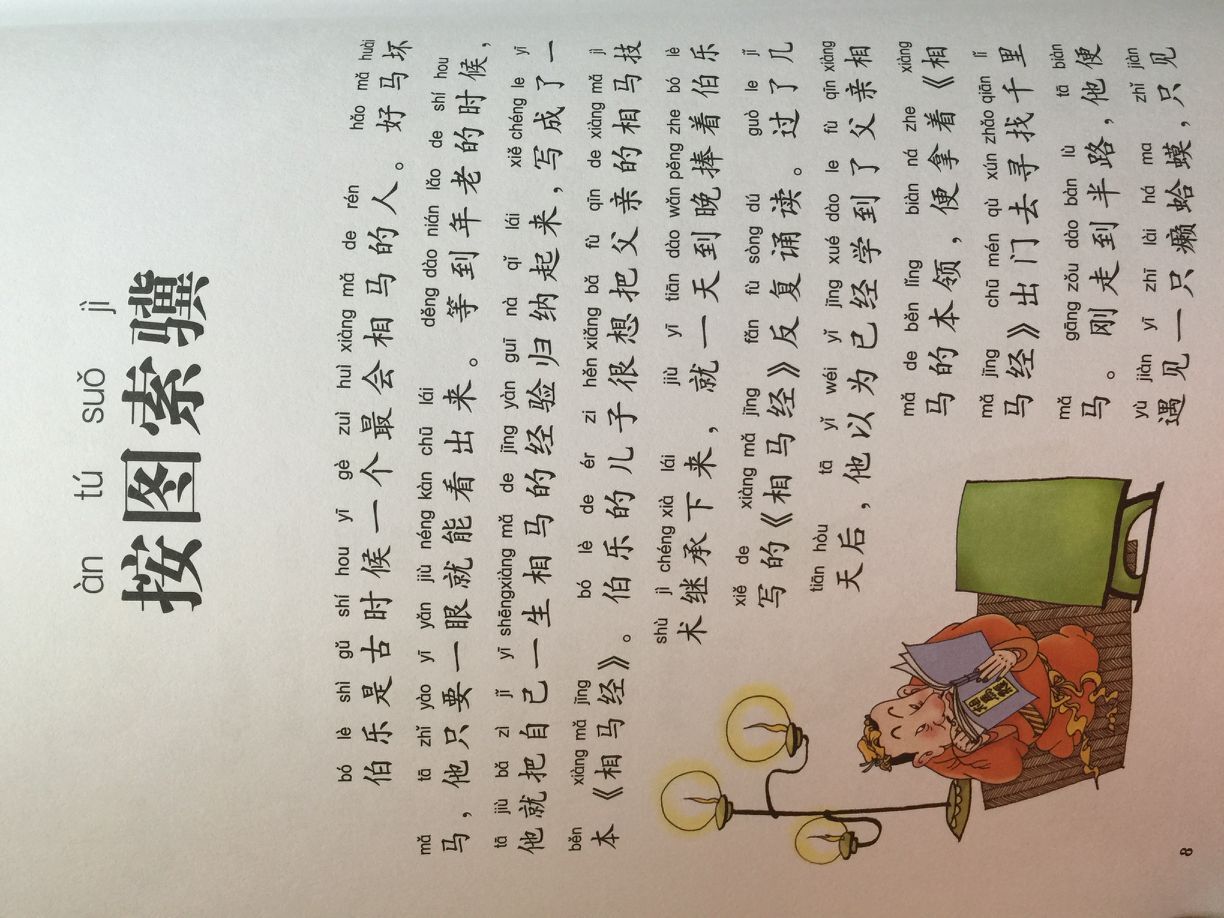 àn tú suǒ jì
按图索骥
bó lè shì gǔ shí hou yī gè zuì huì xiàng mǎ de rén hǎo mǎ huài
伯乐是古时候一个最会相马的人。好马坏
mǎ tā zhǐ yào yī yǎn jiù néng kàn chū lái děng dào nián lǎo de shí hou
马，他只要一眼就能看出来。等到年老的时候，
tā jiù bǎ zì jǐ yī shēngxiàng mǎ de jīng yàn guī nà qǐ lái xiě chéng le yī
他就把自己一生相马的经验归纳起来，写成了一
běn xiàng mǎ jīng bó lè de ér zi hěn xiǎng bǎ fù qīn de xiàng mǎ jì
本《相马经》。伯乐的儿子很想把父亲的相马技
shù jì chéng xià lái jiù yī tiān dào wǎn pěng zhe bó lè
术继承下来，就一天到晚捧着伯乐
xiě de xiàng mǎ jīng fǎn fù sòng dú guò le jǐ
写的《相马经》反复诵读。过了几
tiān hòu tā yǐ wéi yǐ jīng xué dào le fù qīn xiàng
天后，他以为已经学到了父亲相
mǎ de běn lǐng biàn ná zhe xiàng
马的本领，便拿着《相
mǎ jīng chū mén qù xún zhǎo qiān lǐ
马经》出门去寻找千里
mǎ gāng zǒu dào bàn lù tā biàn
马。刚走到半路，他便
yù jiàn yī zhī lài há ma zhǐ jiàn
遇见一只癞蛤蟆，只见
8